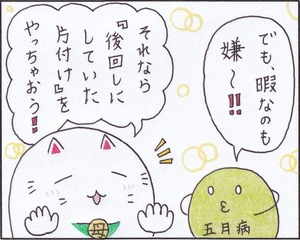 でも、暇なのも
嫌〜!!
それなら
『後回しに
していた
片付け』を
やっちゃおう!!
母
五月病